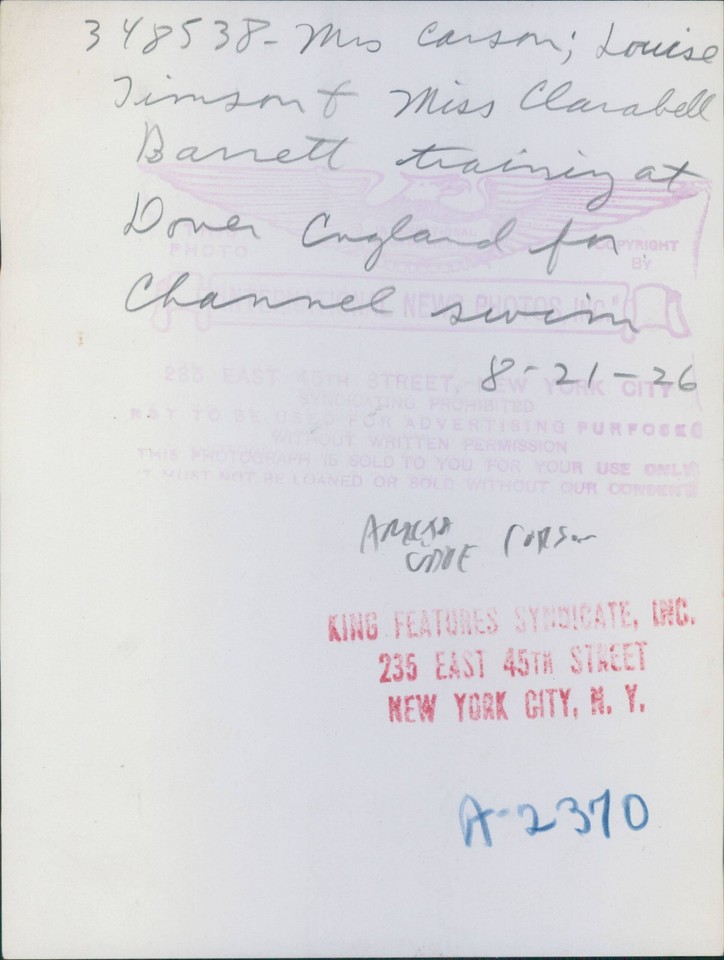 348538- Mrs Carson; Louise
Timson + Miss Clarabell
Barrett training at
Dover England for
Channel swim
8-21-26
PHOTO
COPYRIGHT
BY
INTERNATIONAL NEWS PHOTOS, INC.
235 EAST 45TH STREET, NEW YORK CITY
SYNDICATING PROHIBITED
NOT TO BE USED FOR ADVERTISING PURPOSES
WITHOUT WRITTEN PERMISSION
THIS PHOTOGRAPH IS SOLD TO YOU FOR YOUR USE ONLY
IT MUST NOT BE LOANED OR SOLD WITHOUT OUR CONSENT
Corson
KING FEATURES SYNDICATE, INC.
235 EAST 45TH STREET
NEW YORK CITY, N. Y.
A-2370